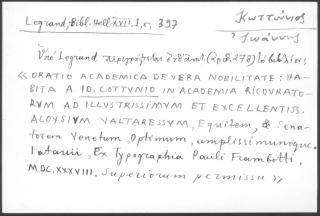 Legrand, Bibl. Hell. XVII, 1, σ. 397
Κωττούνιος
Ἰωάννης
Ὑπὸ Legrand περιγράφεται (ἀριθ. 278) τὸ βιβλίον:
« ORATIO ACADEMICA DE VERA NOBILITATE: HA-
BITA A IO. COTTVNIO IN ACADEMIA RICOVRATO-
RVM AD ILLVSTRISSIMVM ET EXCELLENTISS.
ALOYSIVM VALTARESSVM, Equitem, & Sena-
torem Venetum, Optimum, amplissimumque.
Patavii, Ex Typographia Pauli Frambotti.
M.DC.XXXVIII. Superiorum permissu »